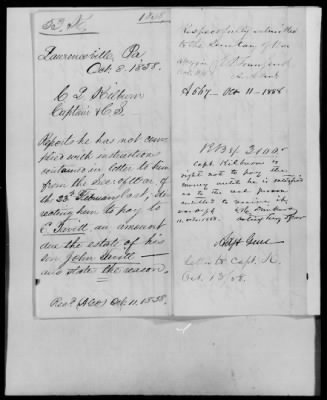 1858
Lawrenceville, Pa
Oct. 8. 1858.
C L Kilburn
Captain & C.S.
Reports he has not com-
plied with instructions
contained in letter to him
from the Sec. of War of
the 23d February last, di-
recting him to pay to
E. Jewitt, an amount
due the estate of his
son John Jewitt
and state the reason.
Recd Oct. 11. 1858.
Respectfully submitted
to the Secretary of War
A 567. Oct 11 - 1858
Capt. Kilburn is
right not to pay the
money until he is satisfied
as to the real person
entitled to receive it
Acting Secy of War
Letter to Capt. K.
Oct. 13/58.